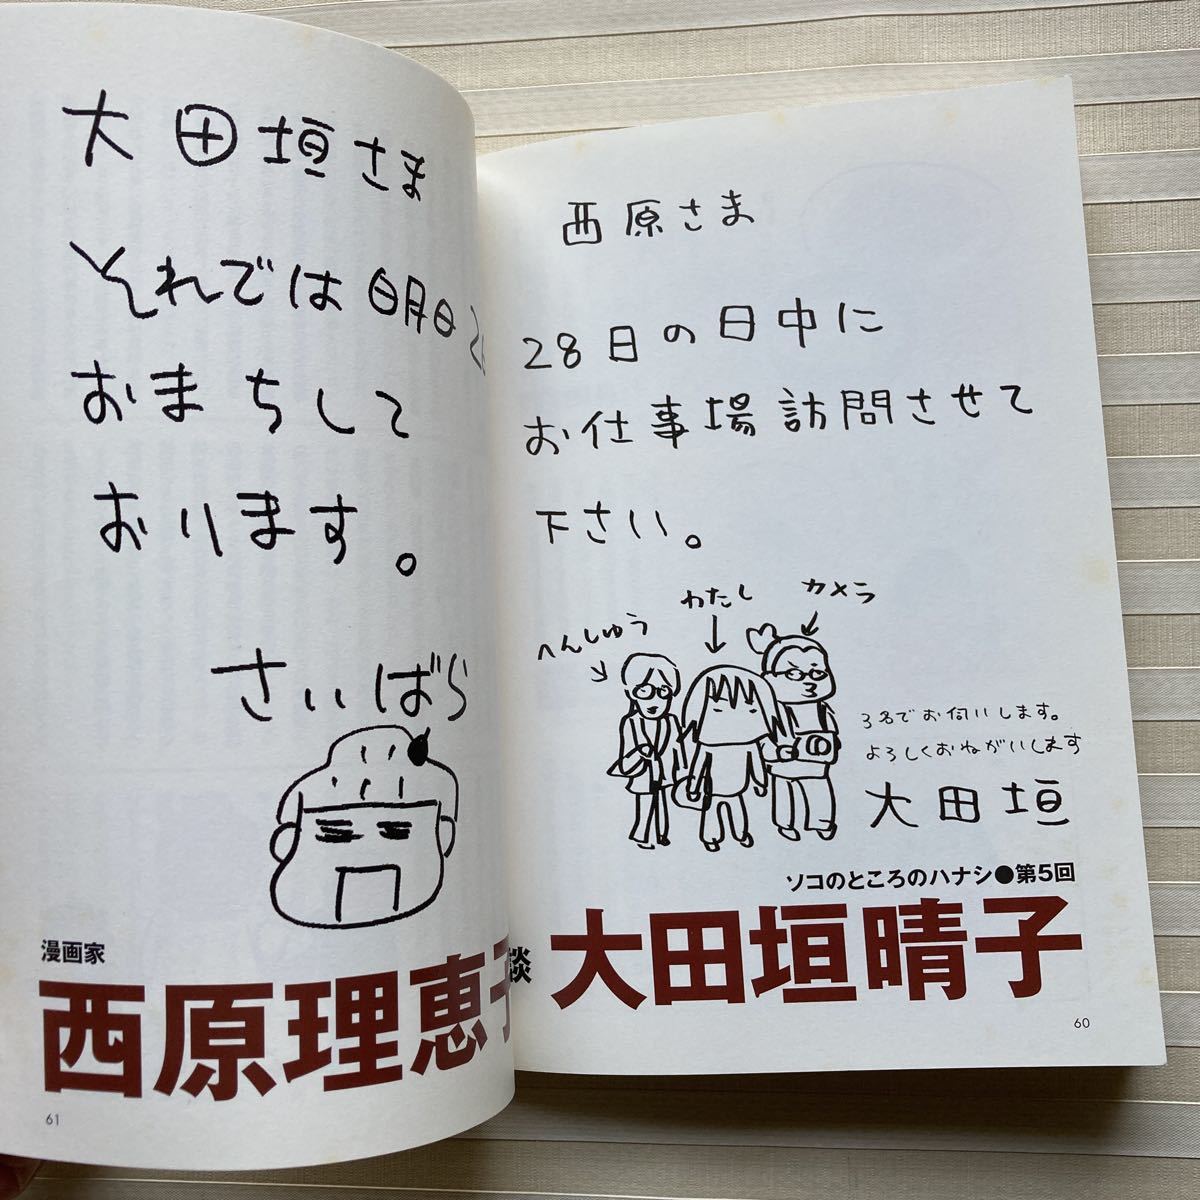 西原さま
28日の日中に
お仕事場訪問させて
下さい。
へんしゅう
わたし
カメラ
3名でお伺いします。
よろしくおねがいします
大田垣
ソコのところのハナシ●第5回
談 大田垣晴子
60
大田垣さま
それでは明日
おまちして
おります。
さいばら
漫画家
西原理恵子
61